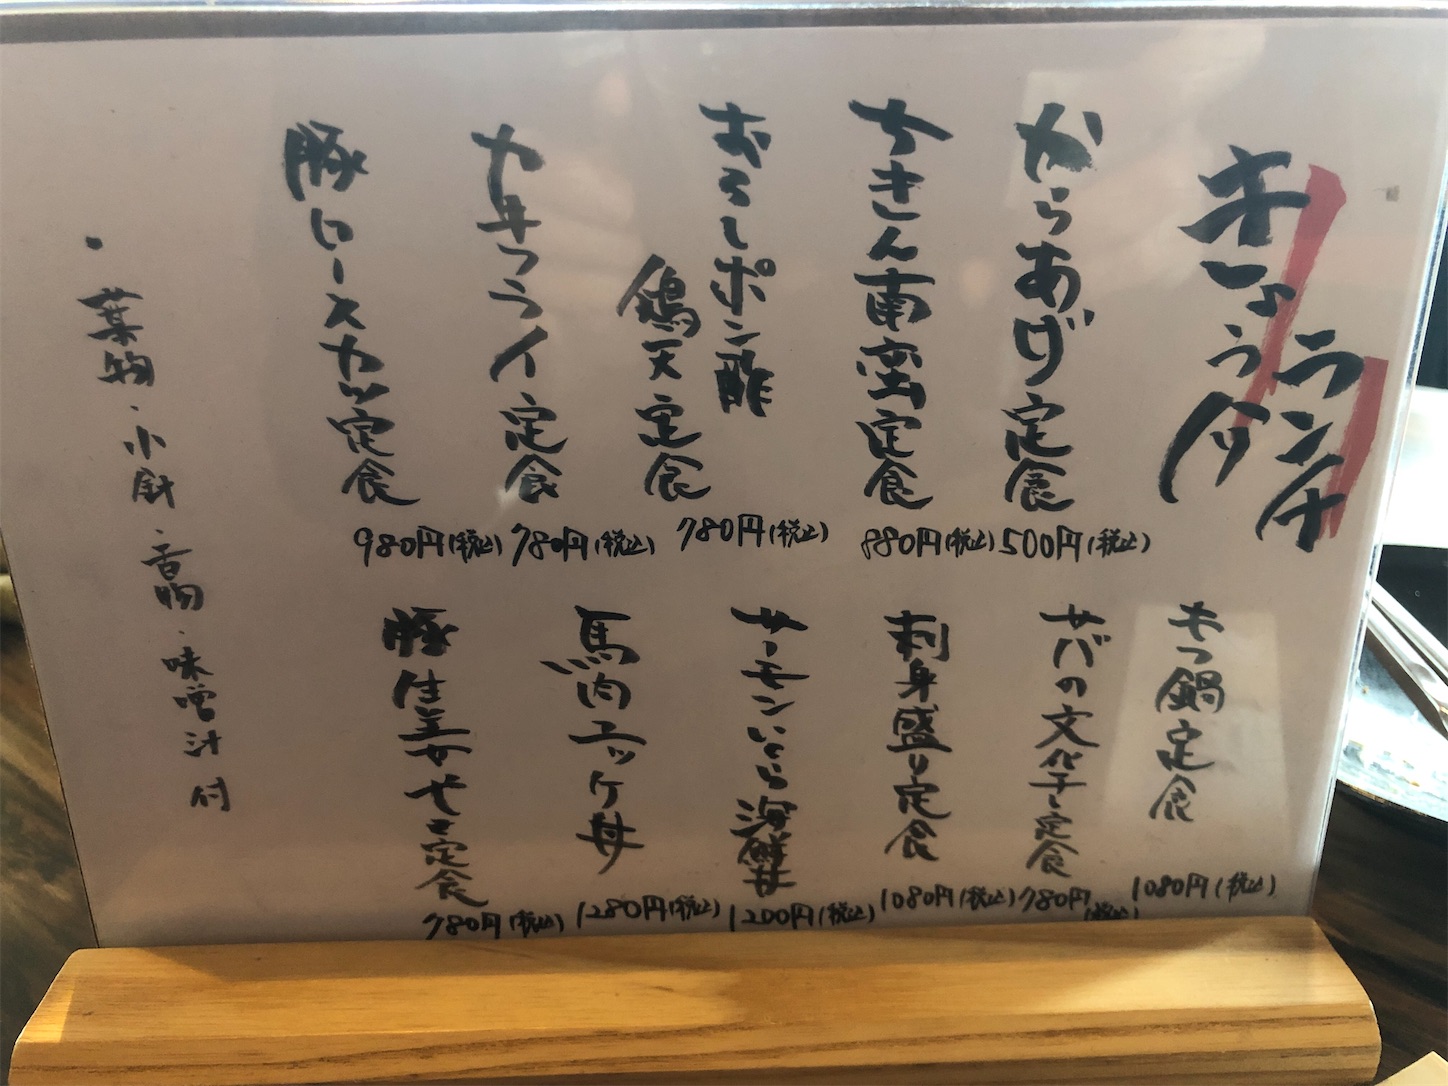 きょう介
ランチ
からあげ定食
500円(税込)
ちきん南蛮定食
880円(税込)
おろしポン酢
鶏天定食
780円(税込)
カキフライ定食
780円(税込)
豚ロースカツ定食
980円(税込)
もつ鍋定食
1080円(税込)
サバの文化干し定食
780円(税込)
刺身盛り定食
1080円(税込)
サーモンいくら海鮮丼
1200円(税込)
馬肉ユッケ丼
1280円(税込)
豚生姜やき定食
780円(税込)
・葉物・小鉢・香物・味噌汁付